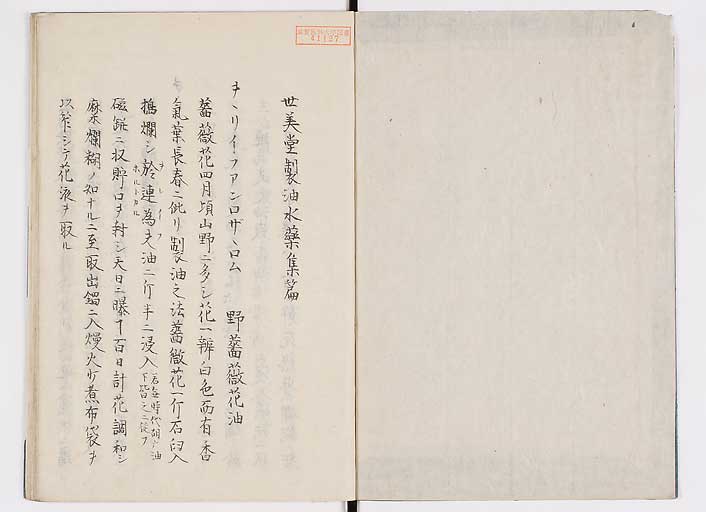 世美堂製油水藥集篇
ヲヽリイ・フアンロザヽロム　野薔薇花油
薔薇花四月頃山野ニ多シ花一瓣白色而有香
氣葉長春ニ似リ製油之法薔薇花一斤石臼入
擣爛シ於連為夫油二斤半ニ浸入
ヲレイフ
ホルトカル
磁瓶ニ收貯口ヲ封シ天日ニ曝下百日計花調和シ
糜爛糊ノ如ナルニ至取出鍋ニ入熳火少煮布袋ヲ
以笮シテ花液ヲ取ル
41127